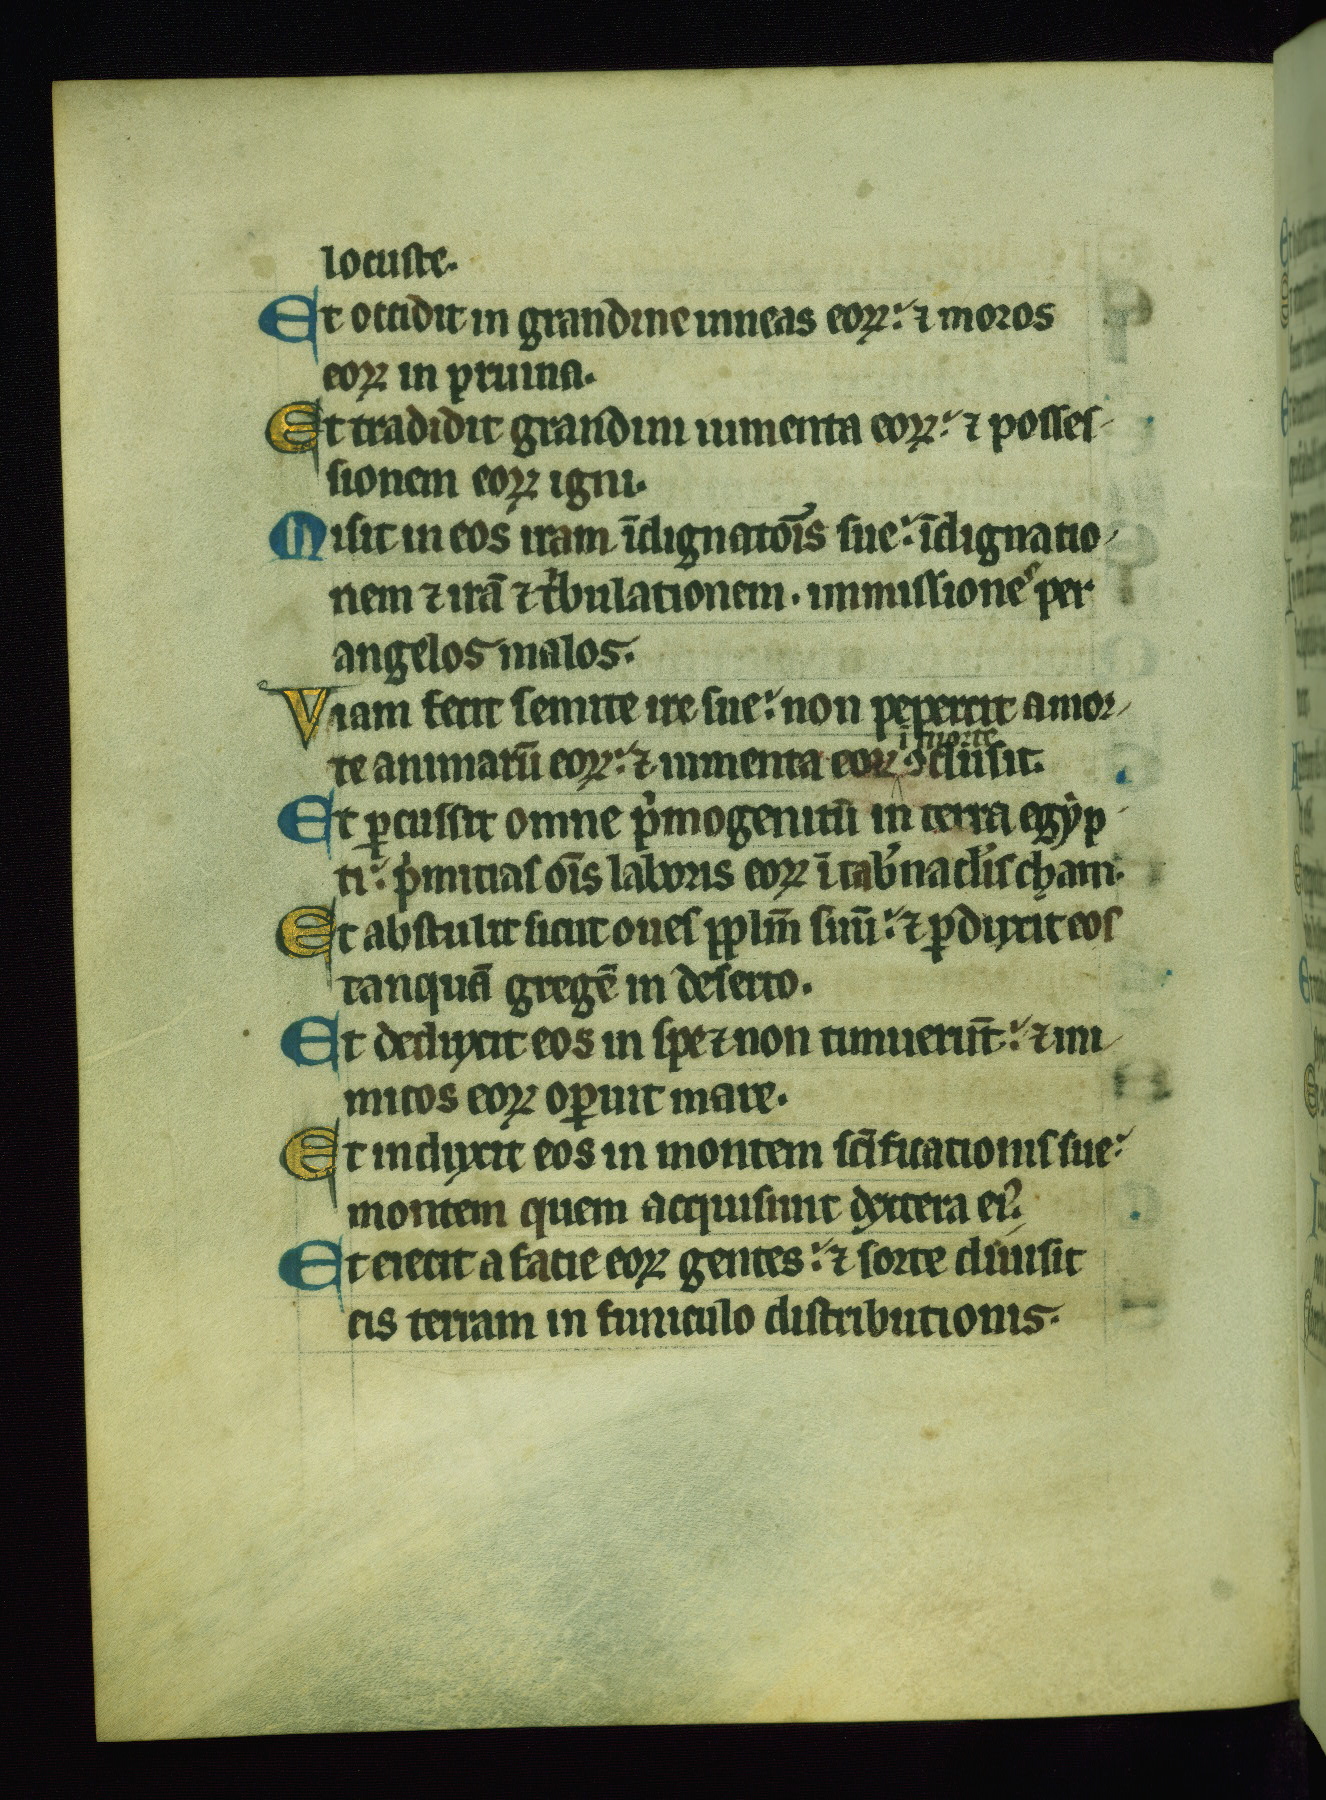 locuste.
Et occidit in grandine uineas eoꝝ: ⁊ moros
eoꝝ in pruina.
Et tradidit grandini iumenta eoꝝ: ⁊ posses-
sionem eoꝝ igni.
Misit in eos iram īdignatōis sue: īdignatio-
nem ⁊ irā ⁊ tⁱbulationem. immissiones per
angelos malos.
Viam fecit semite ire sue: non pepercit a mor-
te animarū eoꝝ: ⁊ iumenta eoꝝ ꝯclusit.
ī morte
Et ꝑcussit omne pⁱmogenitū in terra egyp-
ti: pⁱmitias oīs laboris eoꝝ ī tab̓nacl̓is cham.
Et abstulit sicut oues ppl̄m suū: ⁊ ꝑduxit eos
tanquā gregē in deserto.
Et deduxit eos in spe ⁊ non timuerūt: ⁊ ini-
micos eoꝝ oꝑuit mare.
Et induxit eos in montem sc̄ificationis sue:
montem quem acquisiuit dextera ei᷒.
Et eiecit a facie eoꝝ gentes: ⁊ sorte diuisit
eis terram in funiculo distributionis.